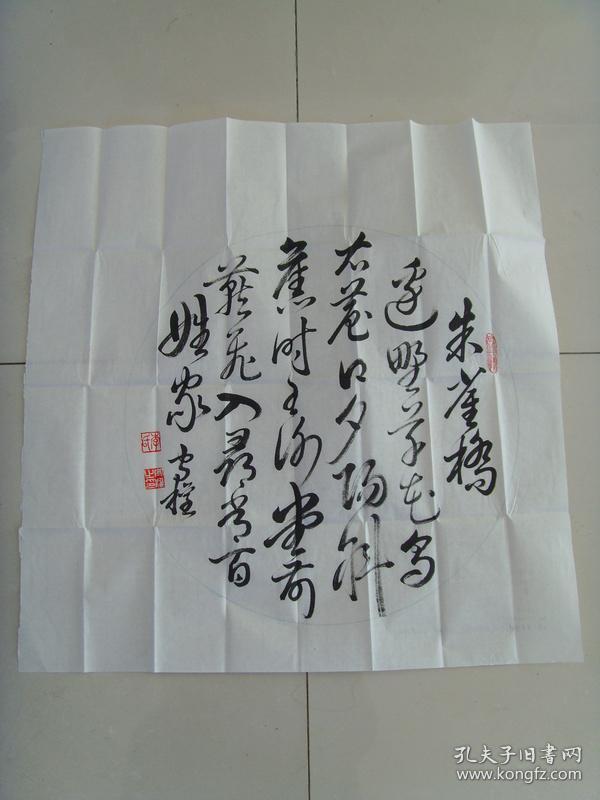 朱雀橋
邊野草花烏
衣巷口夕陽斜
舊時王謝堂前
燕飛入尋常百
姓家
孔夫子旧书网
www.kongfz.com